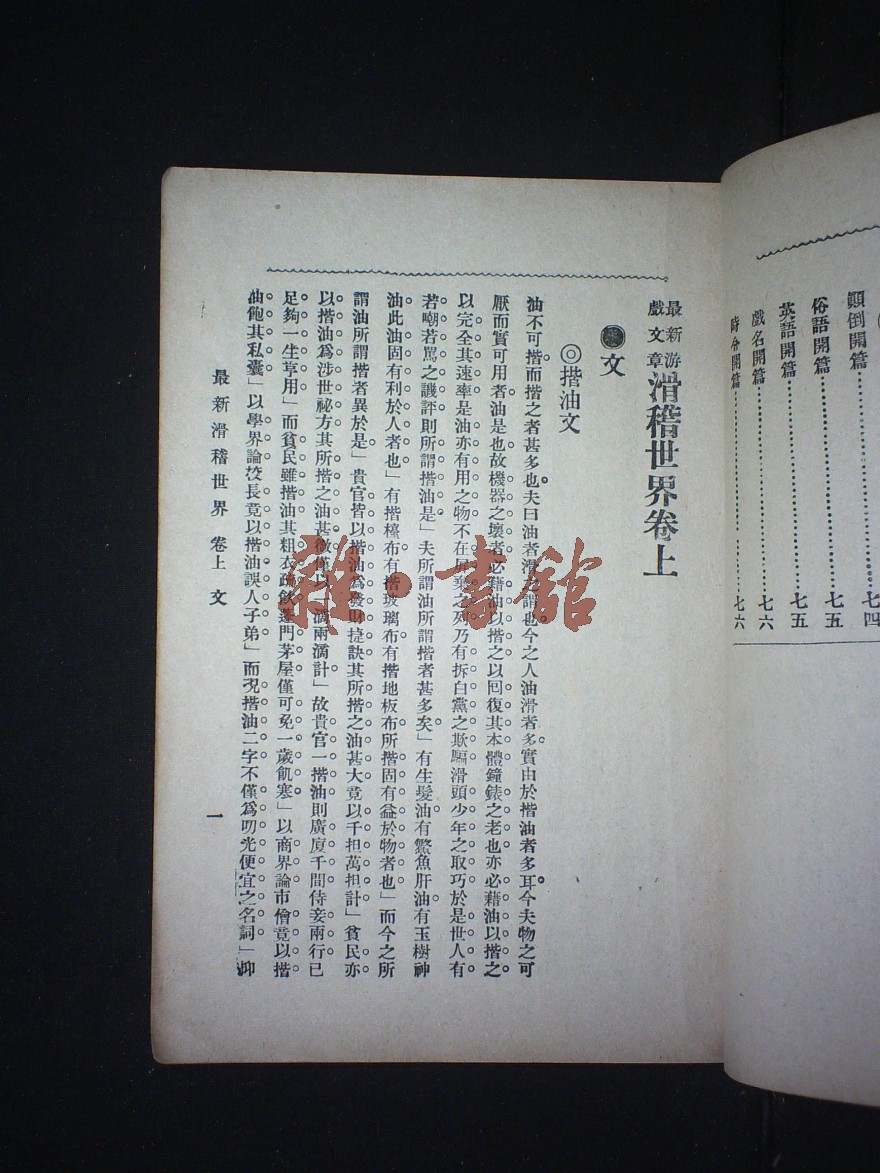 顚倒開篇……七四
俗語開篇……七五
英語開篇……七五
戲名開篇……七六
時令開篇……七六
最新游戲文章滑稽世界卷上
文
◎揩油文
油不可揩而揩之者甚多也夫曰油者滑之謂也今之人油滑者多實由於揩油者多耳今夫物之可
厭而實可用者油是也故機器之壞者必藉油以揩之以回復其本體鐘錶之老也亦必藉油以揩之
以完全其速率是油亦有用之物不在屛棄之列乃有拆白黨之欺騙滑頭少年之取巧於是世人有
若嘲若罵之譏評則所謂揩油是」夫所謂油所謂揩者甚多矣」有生髮油有鱉魚肝油有玉樹神
油此油固有利於人者也」有揩檯布有揩玻璃布有揩地板布所揩固有益於物者也」而今之所
謂油所謂揩者異於是」貴官皆以揩油爲發財捷訣其所揩之油甚大竟以千担萬担計」貧民亦
以揩油爲涉世祕方其所揩之油甚微僅以一滴兩滴計」故貴官一揩油則廣廈千間侍妾兩行已
足夠一生享用」而貧民雖揩油其粗衣疏飮蓬門茅屋僅可免一歲飢寒」以商界論市儈竟以揩
油飽其私囊」以學界論校長竟以揩油誤人子弟」而况揩油二字不僅爲叨光便宜之名詞」抑
最新滑稽世界 卷上 文
一
雜·書館